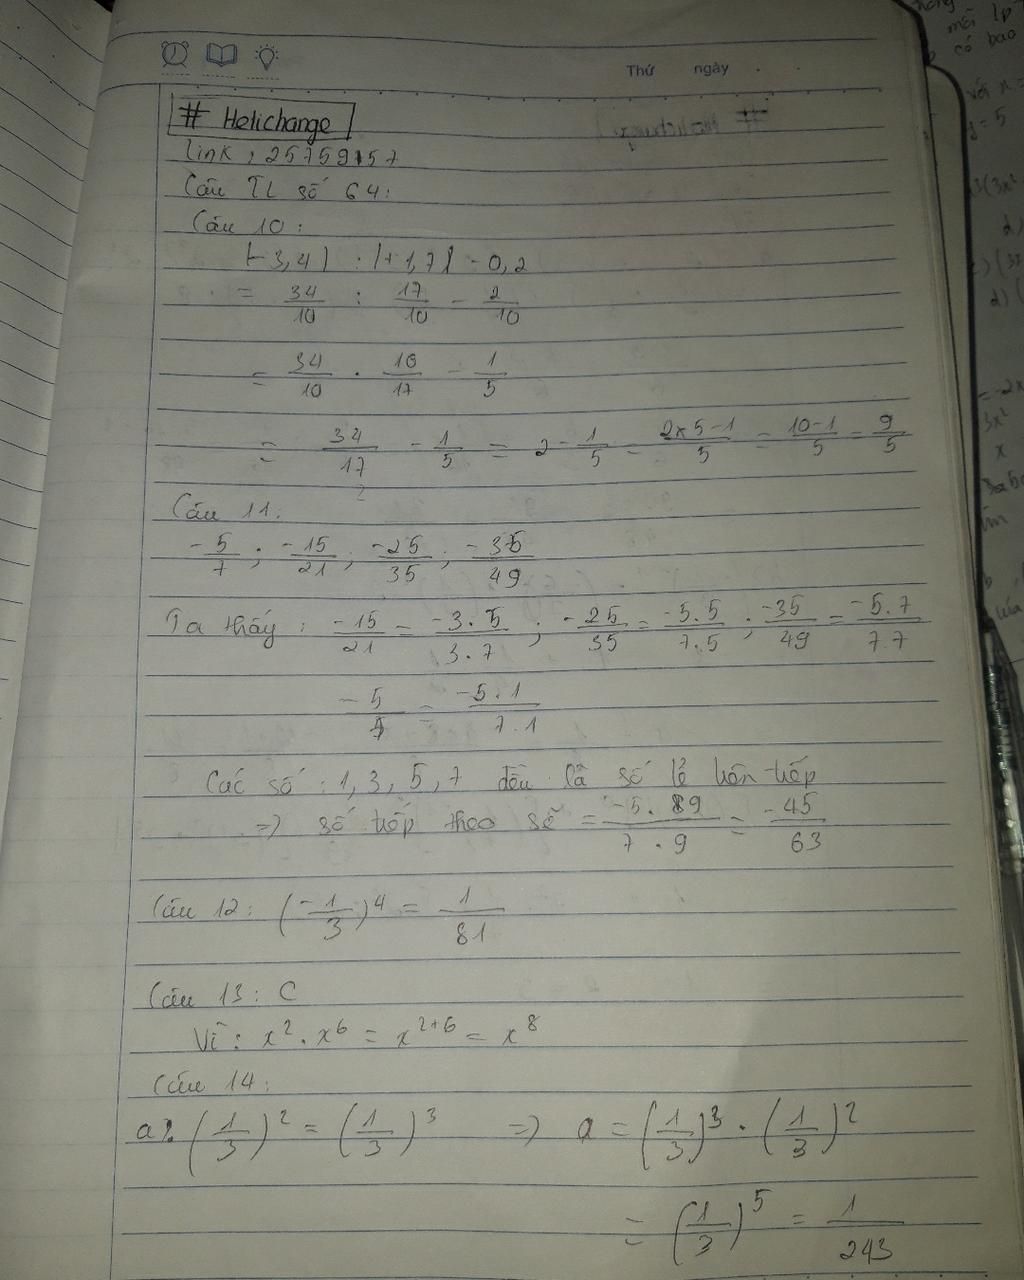 Thứ ngày
# Helichange
link : 25759157
Câu TL số 64:
Câu 10:
|-3,4| : |+1,7| - 0,2
= 34/10 : 17/10 - 2/10
= 34/10 . 10/17 - 1/5
= 34/17 - 1/5 = 2 - 1/5 = 2x5-1/5 = 10-1/5 = 9/5
Câu 11:
-5/7 ; -15/21 ; -25/35 ; -35/49
Ta thấy : -15/21 = -3.5/3.7 ; -25/35 = -5.5/7.5 ; -35/49 = -5.7/7.7
-5/7 = -5.1/7.1
Các số : 1, 3, 5, 7 đều là số lẻ liên tiếp
=> số tiếp theo sẽ = -5.9/7.9 = -45/63
Câu 12: (-1/3)^4 = 1/81
Câu 13: C
Vì : x^2 . x^6 = x^2+6 = x^8
Câu 14:
a : (1/3)^2 = (1/3)^3 => a = (1/3)^3 . (1/3)^2
= (1/3)^5 = 1/243